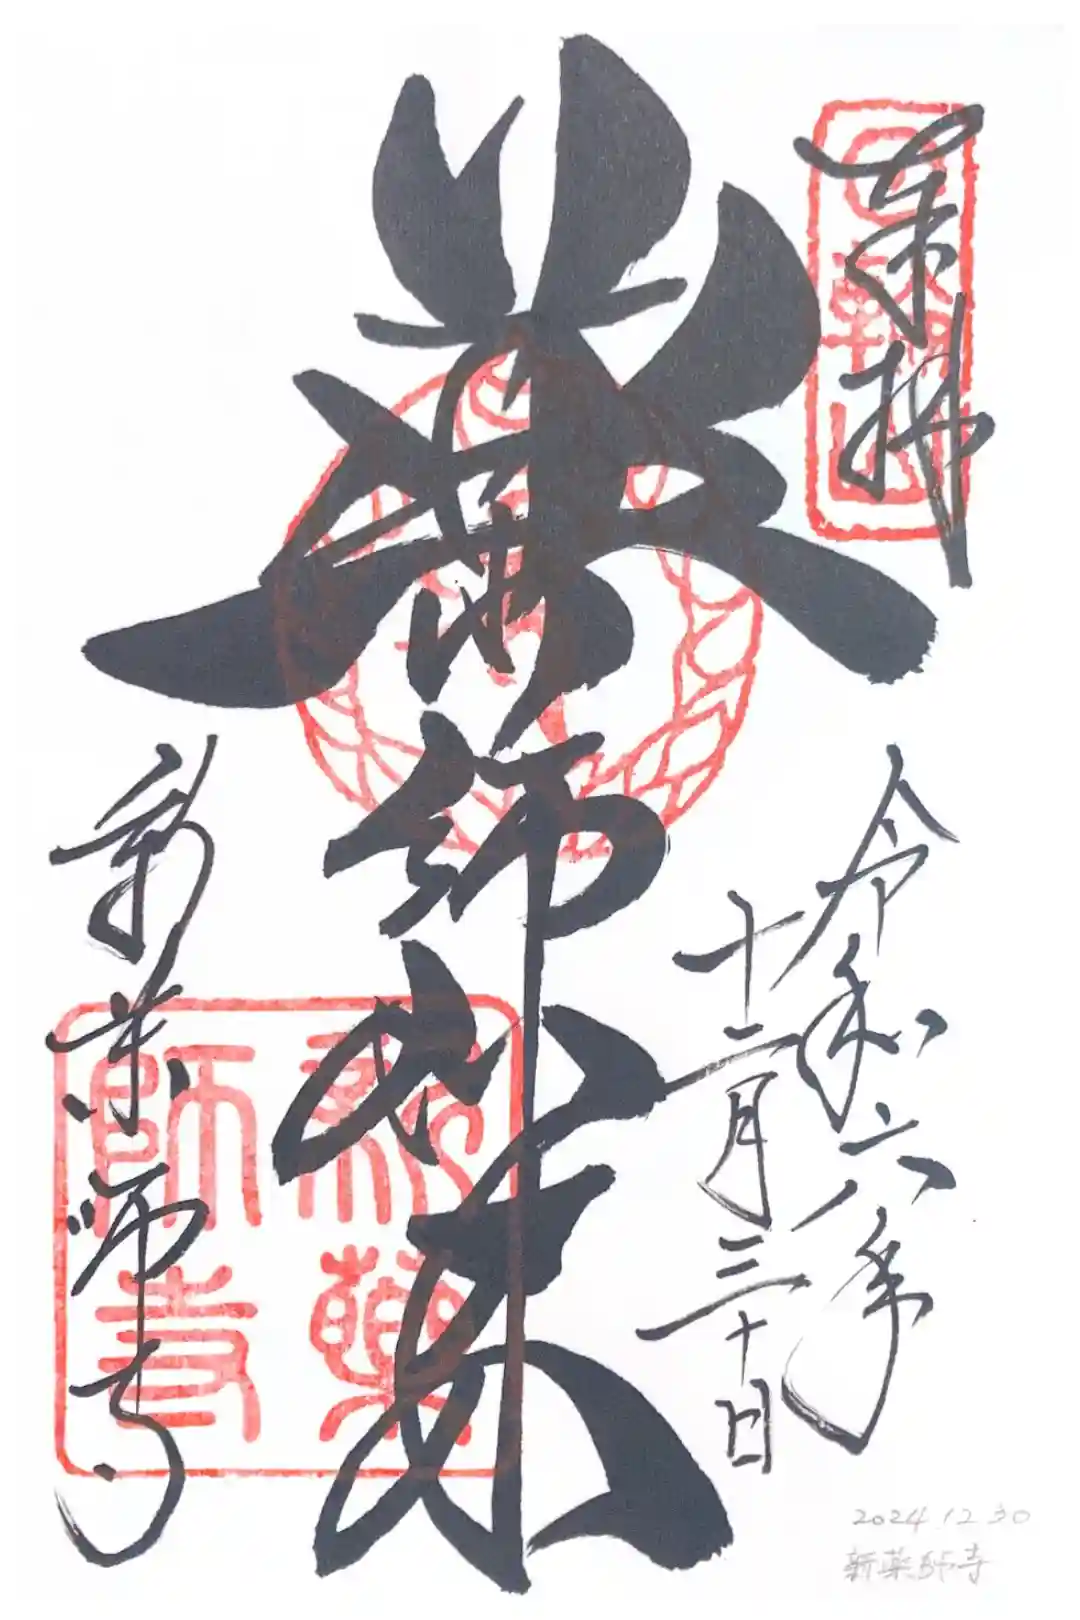 奉拝
令和六年
十二月三十日
薬師如来
新薬師寺
新薬
師寺
2024.12.30
新薬師寺